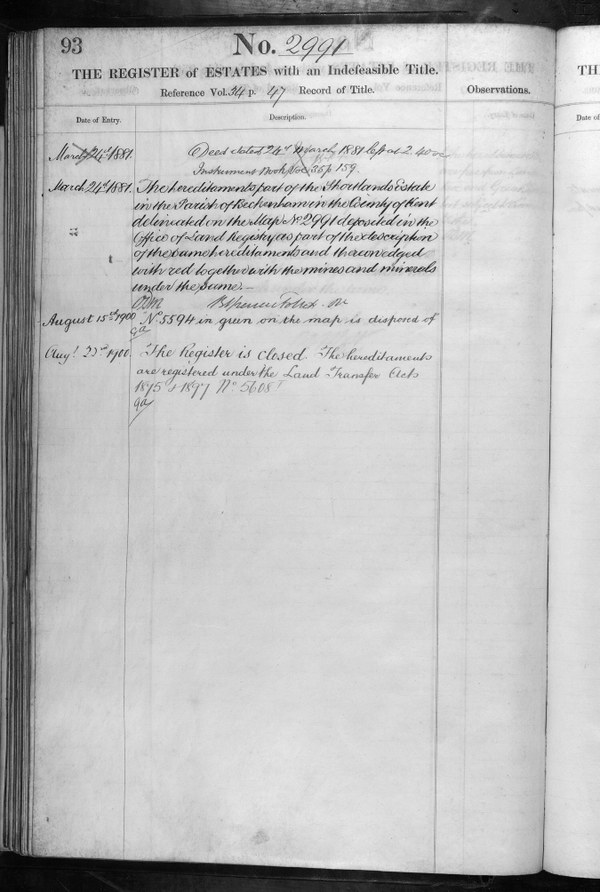 93
No. 2991
THE REGISTER of ESTATES with an Indefeasible Title.
Reference Vol. 34 p. 47 Record of Title.
Observations.
Date of Entry.
Description.
March 24th 1881.
Deed dated 24th March 1881 left at 2.40
Instrument Book Vol 36 p 159.
March 24th 1881.
The hereditaments part of the Shortlands Estate
in the Parish of Beckenham in the County of Kent
delineated on the Map No 2991 deposited in the
Office of Land Registry as part of the description
of the same hereditaments and thereon edged
with red together with the mines and minerals
under the same.
August 15th 1900
No 5594 in green on the map is disposed of
Augt. 23rd 1900.
The Register is closed. The hereditaments
are registered under the Land Transfer Acts
1875 & 1897 No. 5608
TH
Date of